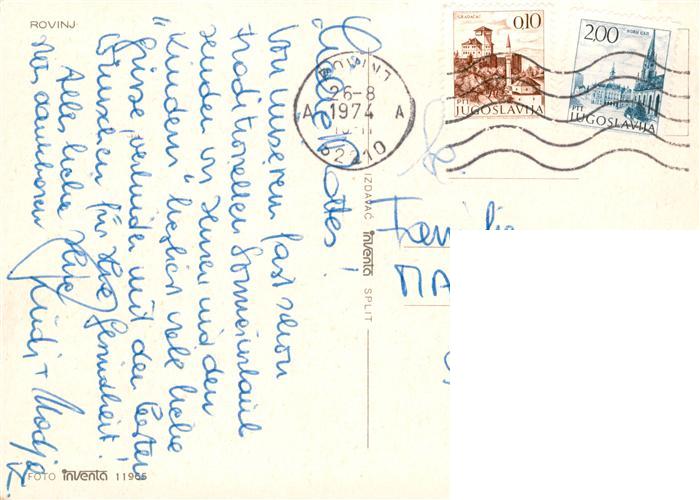 ROVINJ
Liebe
Von unserem fast schon
traditionellen Sommerurlaub
senden wir Ihnen und den
"Kindern" herzlich viele liebe
Grüsse, verbunden mit den besten
Wünschen für Ihre Gesundheit!
Alles liebe
FOTO inventa 11965
IZDAVAČ inventa SPLIT
ROVINJ
26-8
A 1974 A
52210
GRADAČAC
0,10
PTT
JUGOSLAVIJA
2,00
NOVI SAD
PTT
JUGOSLAVIJA
Familie
MA